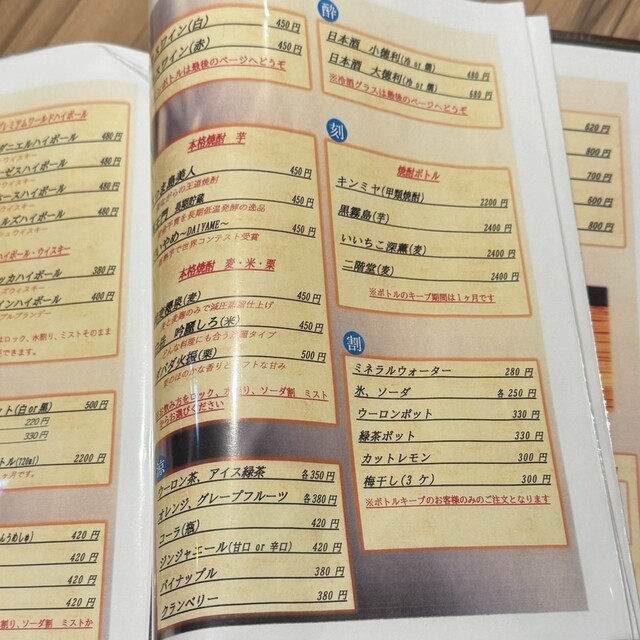 レミアムワールドハイボール
ダニエルハイボール 480円
ウイスキー
ーゼスハイボール 480円
ウイスキー
ロースハイボール 480円
ルズハイボール 480円
シュウイスキー
イボール・ウイスキー
ッカハイボール 380円
インハイボール 400円
プルブランデー
ロック、水割り、ミストそのまま
ット(白 or 黒) 500円
220円
330円
トル(720ml) 2200円
420円
420円
420円
420円
割り、ソーダ割 ミストか
スワイン(白) 450円
スワイン(赤) 450円
ボトルは最後のページへどうぞ
本格焼酎 芋
島美人 450円
ながらの王道焼酎
門 長期貯蔵 450円
を長期低温発酵の逸品
やめ~DAIYAME~ 450円
で世界コンテスト受賞
本格焼酎 麦・米・栗
(麦) 450円
麦と麦麹のみで減圧蒸留仕上げ
吟醸しろ(米) 450円
どんな料理にも合う タイプ
ダバダ火振(栗) 500円
栗のほのかな香りとソフトな甘み
お飲み方をロック、水割り、ソーダ割 ミスト
からお選びください
ウーロン茶、アイス緑茶 各350円
オレンジ、グレープフルーツ 各380円
コーラ(瓶) 420円
ジンジャエール(甘口 or 辛口) 420円
パイナップル 380円
クランベリー 380円
酔
日本酒 小徳利(冷 or 燗) 480円
日本酒 大徳利(冷 or 燗) 680円
※冷酒グラスは最後のページへどうぞ
刻
焼酎ボトル
キンミヤ(甲類焼酎) 2200円
黒霧島(芋) 2400円
いいちこ深薫(麦) 2400円
二階堂(麦) 2400円
※ボトルのキープ期間は1ヶ月です
割
ミネラルウォーター 280円
氷、ソーダ 各250円
ウーロンポット 330円
緑茶ポット 330円
カットレモン 300円
梅干し(3ヶ) 300円
※ボトルキープのお客様のみのご注文となります
620円
800円
700円
900円
800円